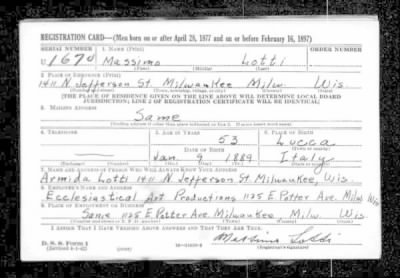 REGISTRATION CARD—(Men born on or after April 28, 1877 and on or before February 16, 1897)
SERIAL NUMBER 1. NAME (Print) ORDER NUMBER
U 1670 Massimo Lotti
(First) (Middle) (Last)
2. PLACE OF RESIDENCE (Print)
1411 N. Jefferson St. Milwaukee Milw. Wis.
(Number and street) (Town, township, village, or city) (County) (State)
[THE PLACE OF RESIDENCE GIVEN ON THE LINE ABOVE WILL DETERMINE LOCAL BOARD
JURISDICTION; LINE 2 OF REGISTRATION CERTIFICATE WILL BE IDENTICAL]
3. MAILING ADDRESS
Same
[Mailing address if other than place indicated on line 2. If same insert word same]
4. TELEPHONE 5. AGE IN YEARS 6. PLACE OF BIRTH
53 Lucca
DATE OF BIRTH (Town or county)
Jan. 9 1889 Italy
(Exchange) (Number) (Mo.) (Day) (Yr.) (State or country)
7. NAME AND ADDRESS OF PERSON WHO WILL ALWAYS KNOW YOUR ADDRESS
Armida Lotti 1411 N. Jefferson St. Milwaukee, Wis.
8. EMPLOYER'S NAME AND ADDRESS
Ecclesiastical Art Productions 1125 E. Potter Ave. Milw. Wis.
9. PLACE OF EMPLOYMENT OR BUSINESS
Same 1125 E. Potter Ave. Milwaukee, Milw. Wis.
(Number and street or R. F. D. number) (Town) (County) (State)
I AFFIRM THAT I HAVE VERIFIED ABOVE ANSWERS AND THAT THEY ARE TRUE.
D. S. S. Form 1
(Revised 4-1-42) Massimo Lotti